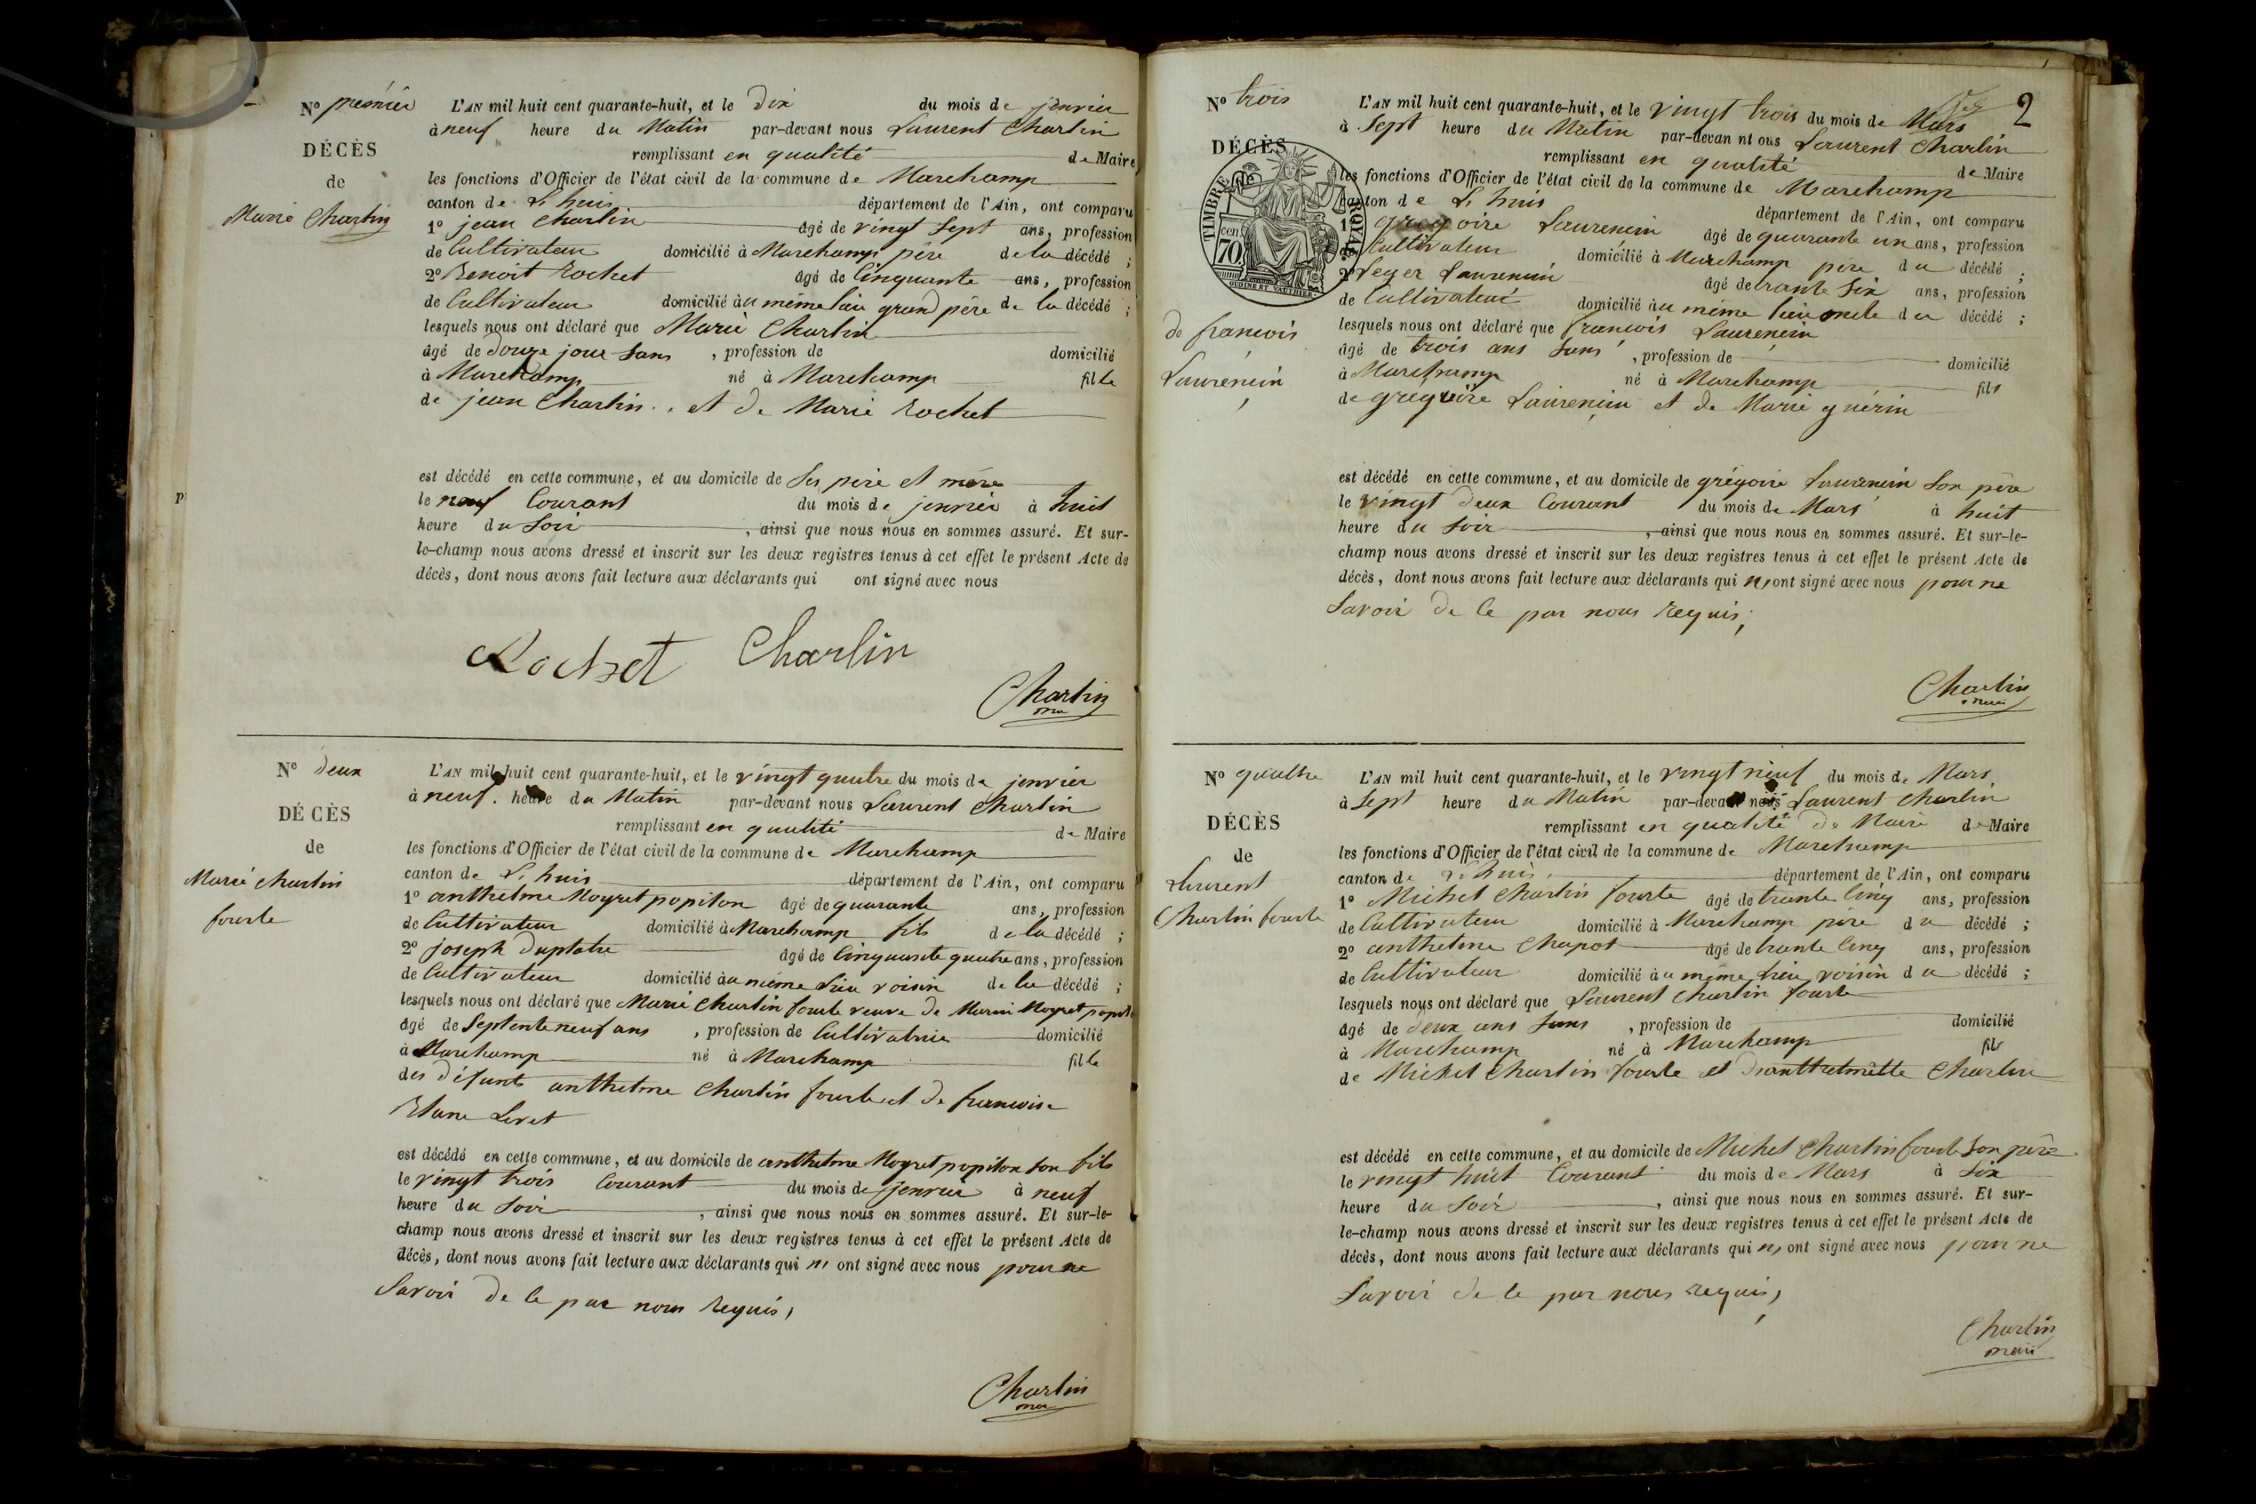 N° premier
DÉCÈS
de
Marie Charlin
L'AN mil huit cent quarante-huit, et le dix du mois de jenvier
à neuf heure du Matin par-devant nous Laurent Charlin
remplissant en qualité de Maire
les fonctions d'Officier de l'état civil de la commune de Marchamp
canton de L'huis département de l'Ain, ont comparu
1° jean Charlin âgé de vingt Sept ans, profession
de Cultivateur domicilié à Marchamp père de la décédé ;
2° Benoit Rochet âgé de Cinquante ans, profession
de Cultivateur domicilié au même lieu grand père de la décédé ;
lesquels nous ont déclaré que Marie Charlin
âgé de douze jour Sans , profession de domicilié
à Marchamp né à Marchamp fille
de jean Charlin et de Marie Rochet
est décédé en cette commune, et au domicile de Ses père et mère
le neuf Courant du mois de jenvier à huit
heure du Soir , ainsi que nous nous en sommes assuré. Et sur-
le-champ nous avons dressé et inscrit sur les deux registres tenus à cet effet le présent Acte de
décès, dont nous avons fait lecture aux déclarants qui ont signé avec nous
Rochet Charlin
Charlin
N° deux
DÉCÈS
de
Marie Charlin
fourte
L'AN mil huit cent quarante-huit, et le vingt quatre du mois de jenvier
à neuf heure du Matin par-devant nous Laurent Charlin
remplissant en qualité de Maire
les fonctions d'Officier de l'état civil de la commune de Marchamp
canton de L'huis département de l'Ain, ont comparu
1° anthelme Moyret popiton âgé de quarante ans, profession
de Cultivateur domicilié à Marchamp fils de la décédé ;
2° joseph Duplatre âgé de Cinquante quatre ans, profession
de Cultivateur domicilié au même lieu voisin de la décédé ;
lesquels nous ont déclaré que Marie Charlin fourte veuve de Marin Moyret
âgé de Septente neuf ans , profession de Cultivatrice domicilié
à Marchamp né à Marchamp fille
des défunts anthelme Charlin fourte et de francoise
est décédé en cette commune, et au domicile de anthelme Moyret popiton Son fils
le vingt trois Courant du mois de jenvier à neuf
heure du Soir , ainsi que nous nous en sommes assuré. Et sur-le-
champ nous avons dressé et inscrit sur les deux registres tenus à cet effet le présent Acte de
décès, dont nous avons fait lecture aux déclarants qui n'ont signé avec nous pour ne
Savoir de Ce par nous Requis,
Charlin
N° trois
2
DÉCÈS
TIMBRE ROYAL
70 cen
OUDINÉ ET VAUTHIER
de francois
Laurencin
L'AN mil huit cent quarante-huit, et le vingt trois du mois de Mars
à Sept heure du Matin par-devan nt ous Laurent Charlin
remplissant en qualité de Maire
les fonctions d'Officier de l'état civil de la commune de Marchamp
canton de L'huis département de l'Ain, ont comparu
1° gregoire Laurencin âgé de quarante un ans, profession
de Cultivateur domicilié à Marchamp père du décédé ;
2° Leger Laurencin âgé de trante Six ans, profession
de Cultivateur domicilié au même lieu oncle du décédé ;
lesquels nous ont déclaré que francois Laurencin
âgé de trois ans Sans , profession de domicilié
à Marchamp né à Marchamp fils
de gregoire Laurencin et de Marie guérin
est décédé en cette commune, et au domicile de grégoire Laurencin Son père
le vingt deux Courant du mois de Mars à huit
heure du Soir , ainsi que nous nous en sommes assuré. Et sur-le-
champ nous avons dressé et inscrit sur les deux registres tenus à cet effet le présent Acte de
décès, dont nous avons fait lecture aux déclarants qui n'ont signé avec nous pour ne
Savoir de Ce par nous Requis,
Charlin
N° quattre
DÉCÈS
de
Laurent
Charlin fourte
L'AN mil huit cent quarante-huit, et le vingt neuf du mois de Mars
à Sept heure du Matin par-devant nous Laurent Charlin
remplissant en qualité de Maire de Maire
les fonctions d'Officier de l'état civil de la commune de Marchamp
canton de L'huis département de l'Ain, ont comparu
1° Michel Charlin fourte âgé de trante Cinq ans, profession
de Cultivateur domicilié à Marchamp père du décédé ;
2° anthelme Chapot âgé de trante Cinq ans, profession
de Cultivateur domicilié au même lieu voisin du décédé ;
lesquels nous ont déclaré que Laurent Charlin fourte
âgé de deux ans Sans , profession de domicilié
à Marchamp né à Marchamp fils
de Michel Charlin fourte et d'anthelmette Charlin
est décédé en cette commune, et au domicile de Michel Charlin fourte Son père
le vingt huit Courant du mois de Mars à Six
heure du Soir , ainsi que nous nous en sommes assuré. Et sur-
le-champ nous avons dressé et inscrit sur les deux registres tenus à cet effet le présent Acte de
décès, dont nous avons fait lecture aux déclarants qui n'ont signé avec nous pour ne
Savoir de Ce par nous Requis,
Charlin